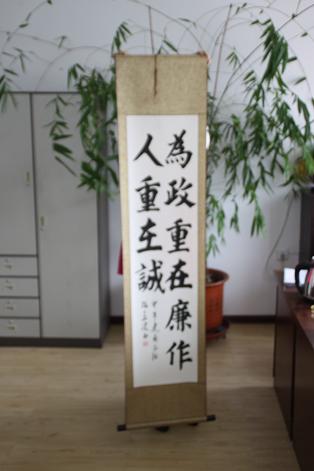 為政重在廉作
人重在誠